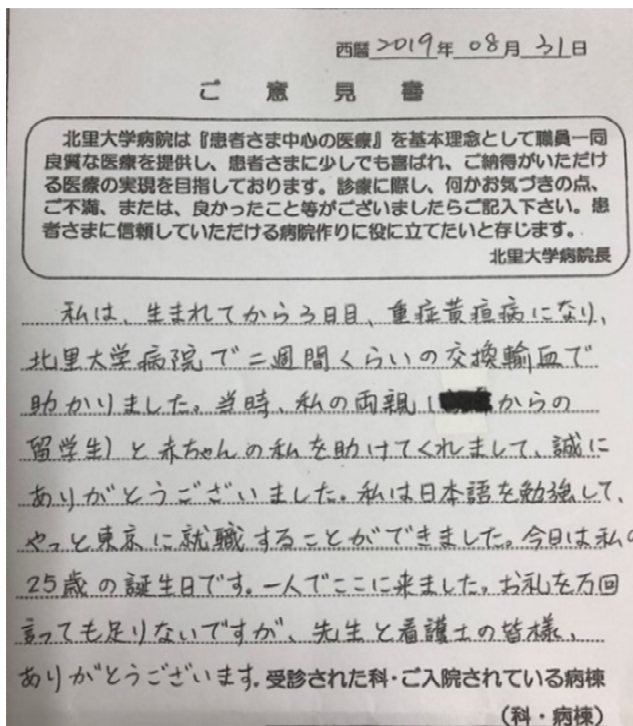 西暦2019年08月31日
ご意見書
北里大学病院は『患者さま中心の医療』を基本理念として職員一同
良質な医療を提供し、患者さまに少しでも喜ばれ、ご納得がいただけ
る医療の実現を目指しております。診療に際し、何かお気づきの点、
ご不満、または、良かったこと等がございましたらご記入下さい。患
者さまに信頼していただける病院作りに役に立てたいと存じます。
北里大学病院長
私は、生まれてから3日目、重症黄疸病になり、
北里大学病院で二週間くらいの交換輸血で
助かりました。当時、私の両親(からの
留学生)と赤ちゃんの私を助けてくれまして、誠に
ありがとうございました。私は日本語を勉強して、
やっと東京に就職することができました。今日は私の
25歳の誕生日です。一人でここに来ました。お礼を万回
言っても足りないですが、先生と看護士の皆様、
ありがとうございます。受診された科・ご入院されている病棟
(科・病棟)